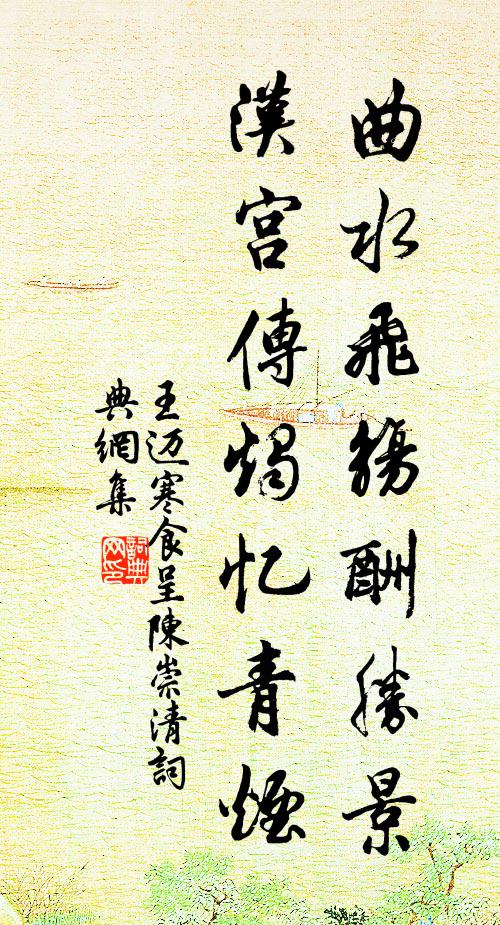 曲水飛觴酬勝景
漢宮傳燭忆青煙
王迈寒食呈陳崇清詞
典網集
詞典
网印